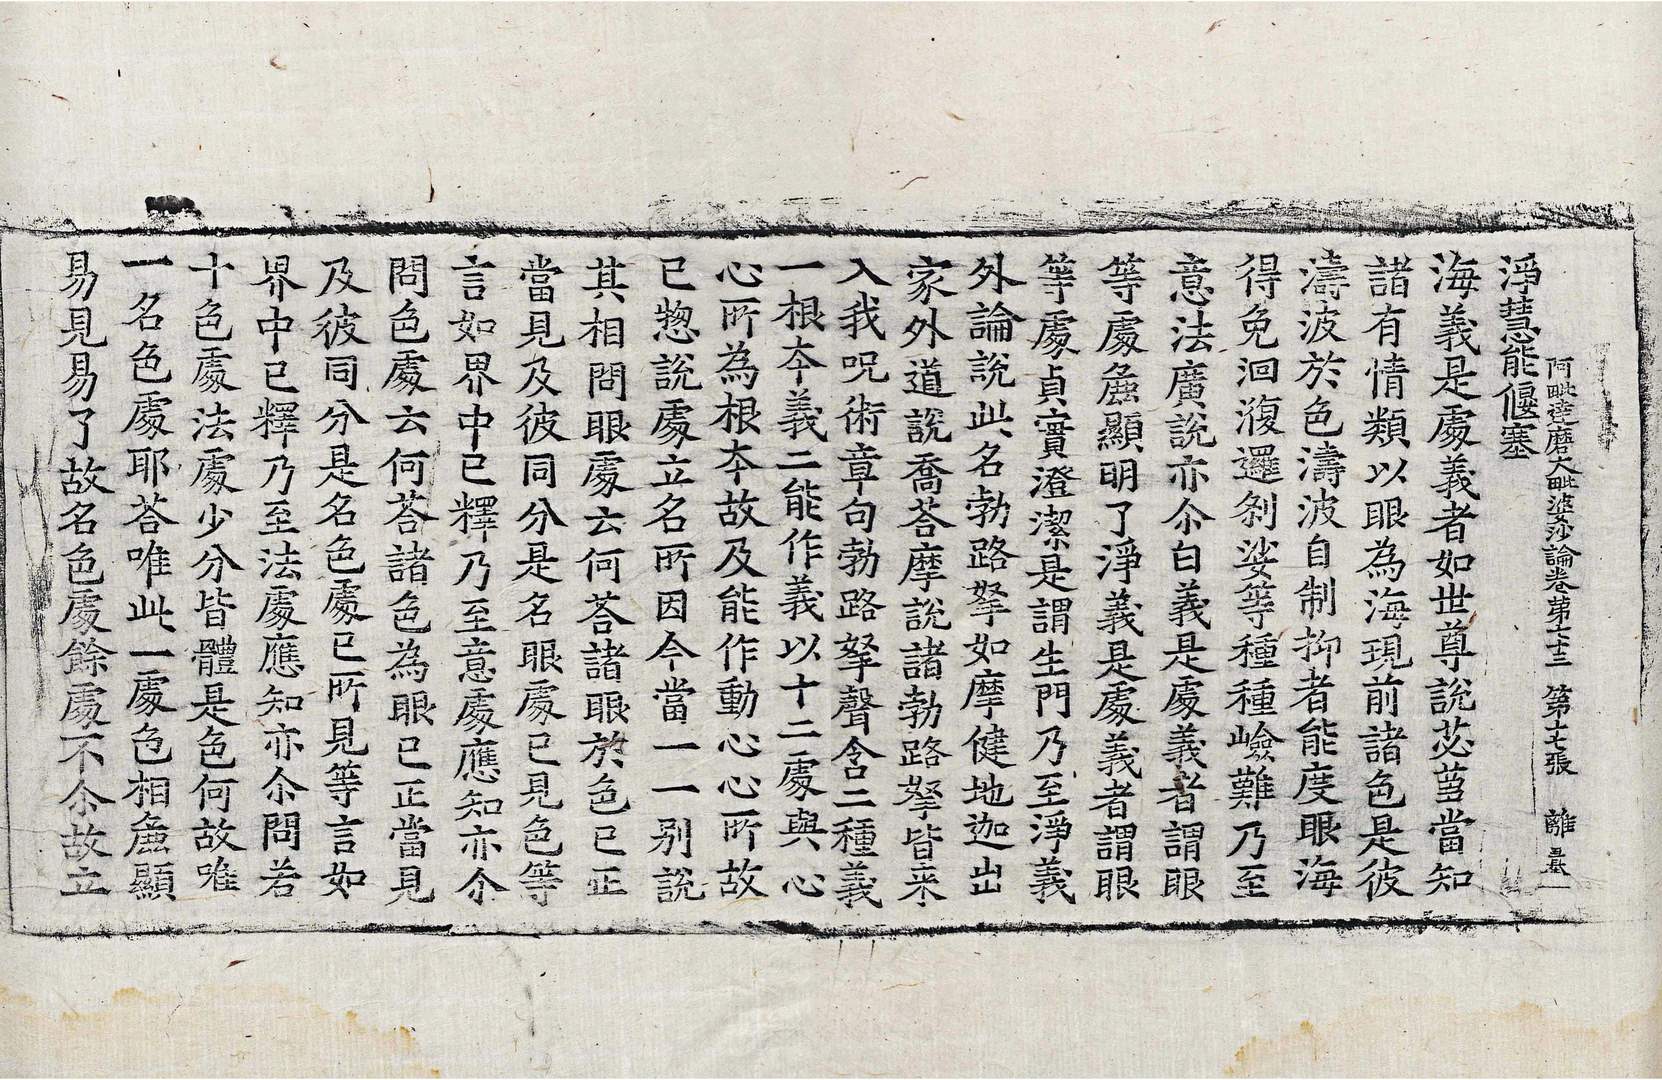 阿毗達磨大毗婆沙論卷第七十三 第十七張 離
淨慧能偃塞
海義是處義者如世尊說苾芻當知
諸有情類以眼為海現前諸色是彼
濤波於色濤波自制抑者能度眼海
得免洄澓邏剎娑等種種嶮難乃至
意法廣說亦尒白義是處義者謂眼
等處麁顯明了淨義是處義者謂眼
等處貞實澄潔是謂生門乃至淨義
外論說此名勃路拏如摩健地迦出
家外道說喬荅摩說諸勃路拏皆来
入我呪術章句勃路拏聲含二種義
一根夲義二能作義以十二處與心
心所為根夲故及能作動心心所故
已惣說處立名所因今當一一別說
其相問眼處云何荅諸眼於色已正
當見及彼同分是名眼處已見色等
言如界中已釋乃至意處應知亦尒
問色處云何荅諸色為眼已正當見
及彼同分是名色處已所見等言如
界中已釋乃至法處應知亦尒問若
十色處法處少分皆體是色何故唯
一名色處耶荅唯此一處色相麁顯
易見易了故名色處餘處不尒故立